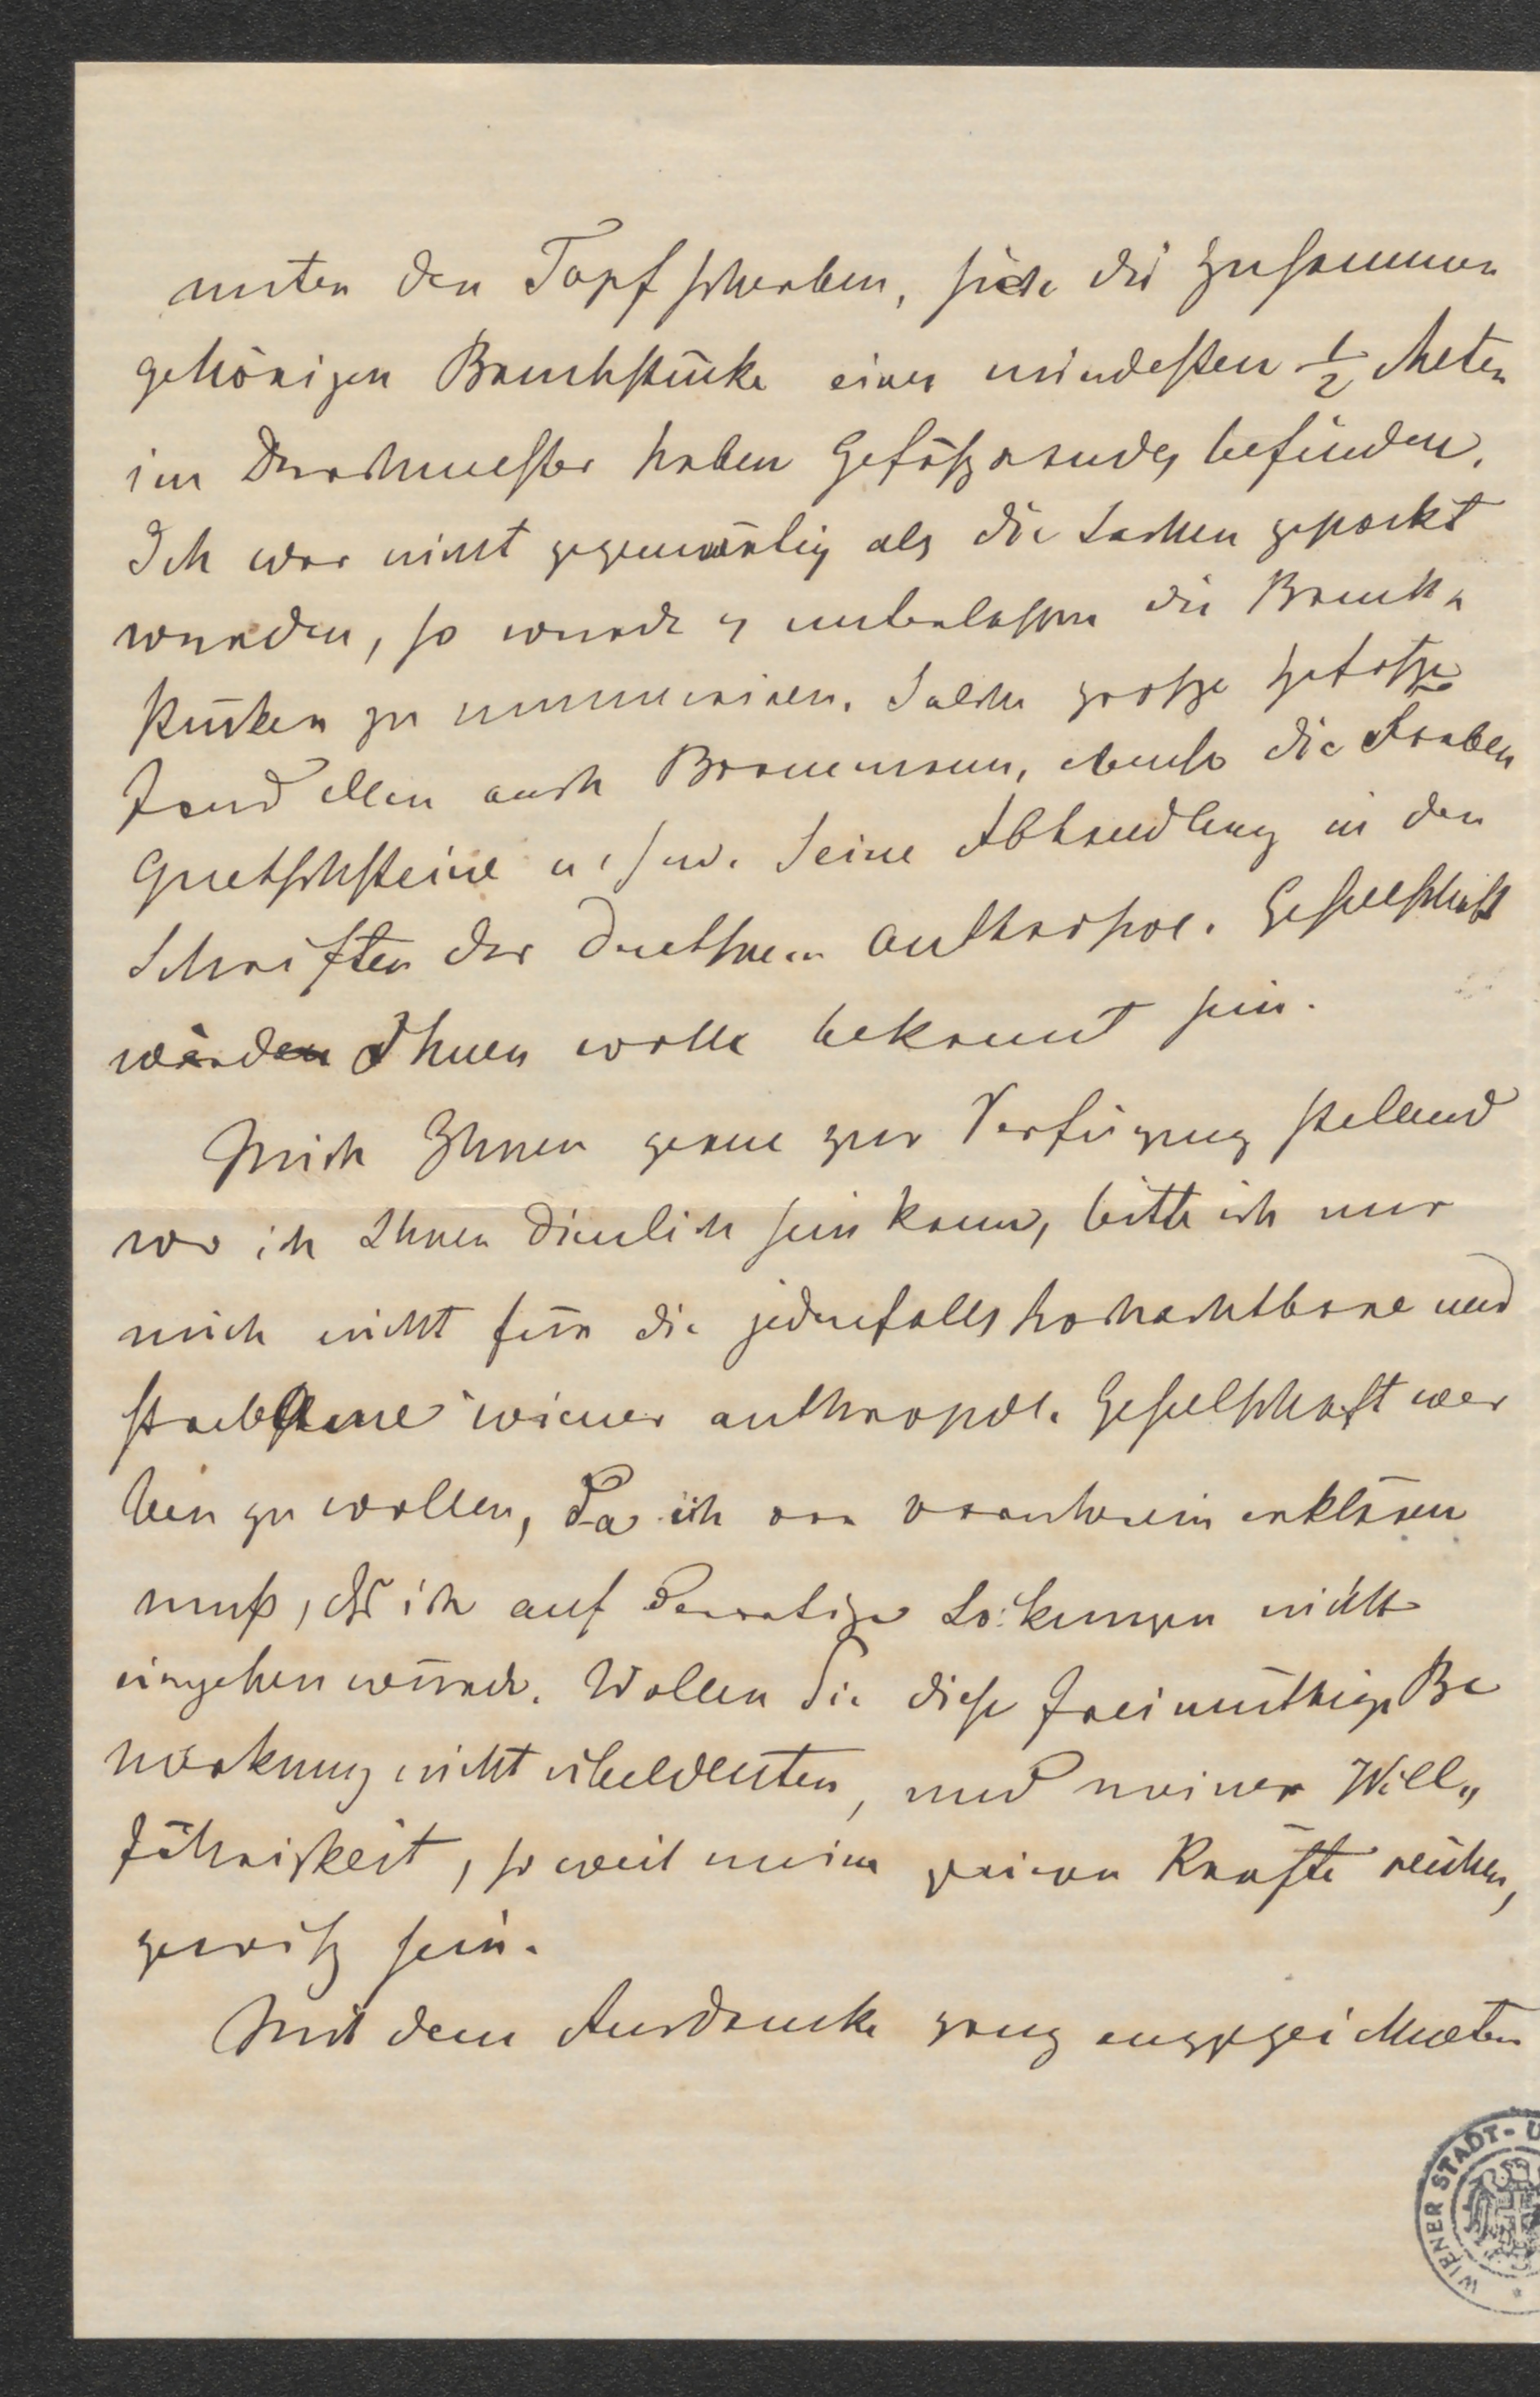 unter den Topfscherben, sich die zusammen
gehörigen Bruchstücke eines mindesten ½ Meter
im Durchmesser haben Gefäßrandes befinden.
Ich war nicht gegenwärtig als die Sachen gepackt
wurden, so wurde es unterlassen die Bruch,
stücken zu nummeriren. Solche große Gefäße
fand auch die Farben
Quetschsteine u. s. w. Seine Abhandlung in den
Schriften der anthropol. Gesellschaft
werden Ihnen wolle bekannt sein.
Mich Ihnen gerne zur Verfügung stellend
wo ich Ihnen dienlich sein kann, bitte ich nur
mich nicht für die jedenfalls hochachtbare und
strebsame wiener anthropol. Gesellschaft wer
ben zu wollen, da ich von vornherein erklären
muß, daß ich auf derartige Lockungen nicht
eingehen würde. Wollen Sie diese freimüthige Be
merkung nicht übeldeuten, und meiner Will„
fährigkeit, so weit meine Kräfte reichen,
gewiß sein.
Mit dem Ausdrucke ganz ausgezeichneter
WIENER STADT- U